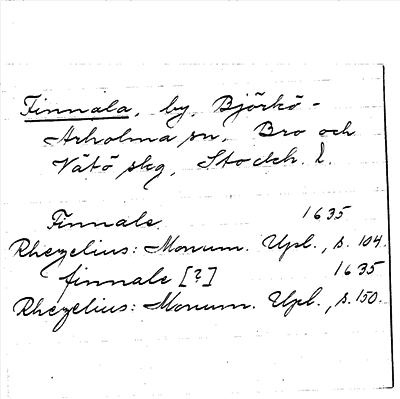 Finnala, by, Björkö-
Arholma sn, Bro och
Vätö skg, Stockh. l.
Finnale. 1635
Rhezelius: Monum. Upl., s. 104.
finnale [?] 1635
Rhezelius: Monum. Upl., s. 150.